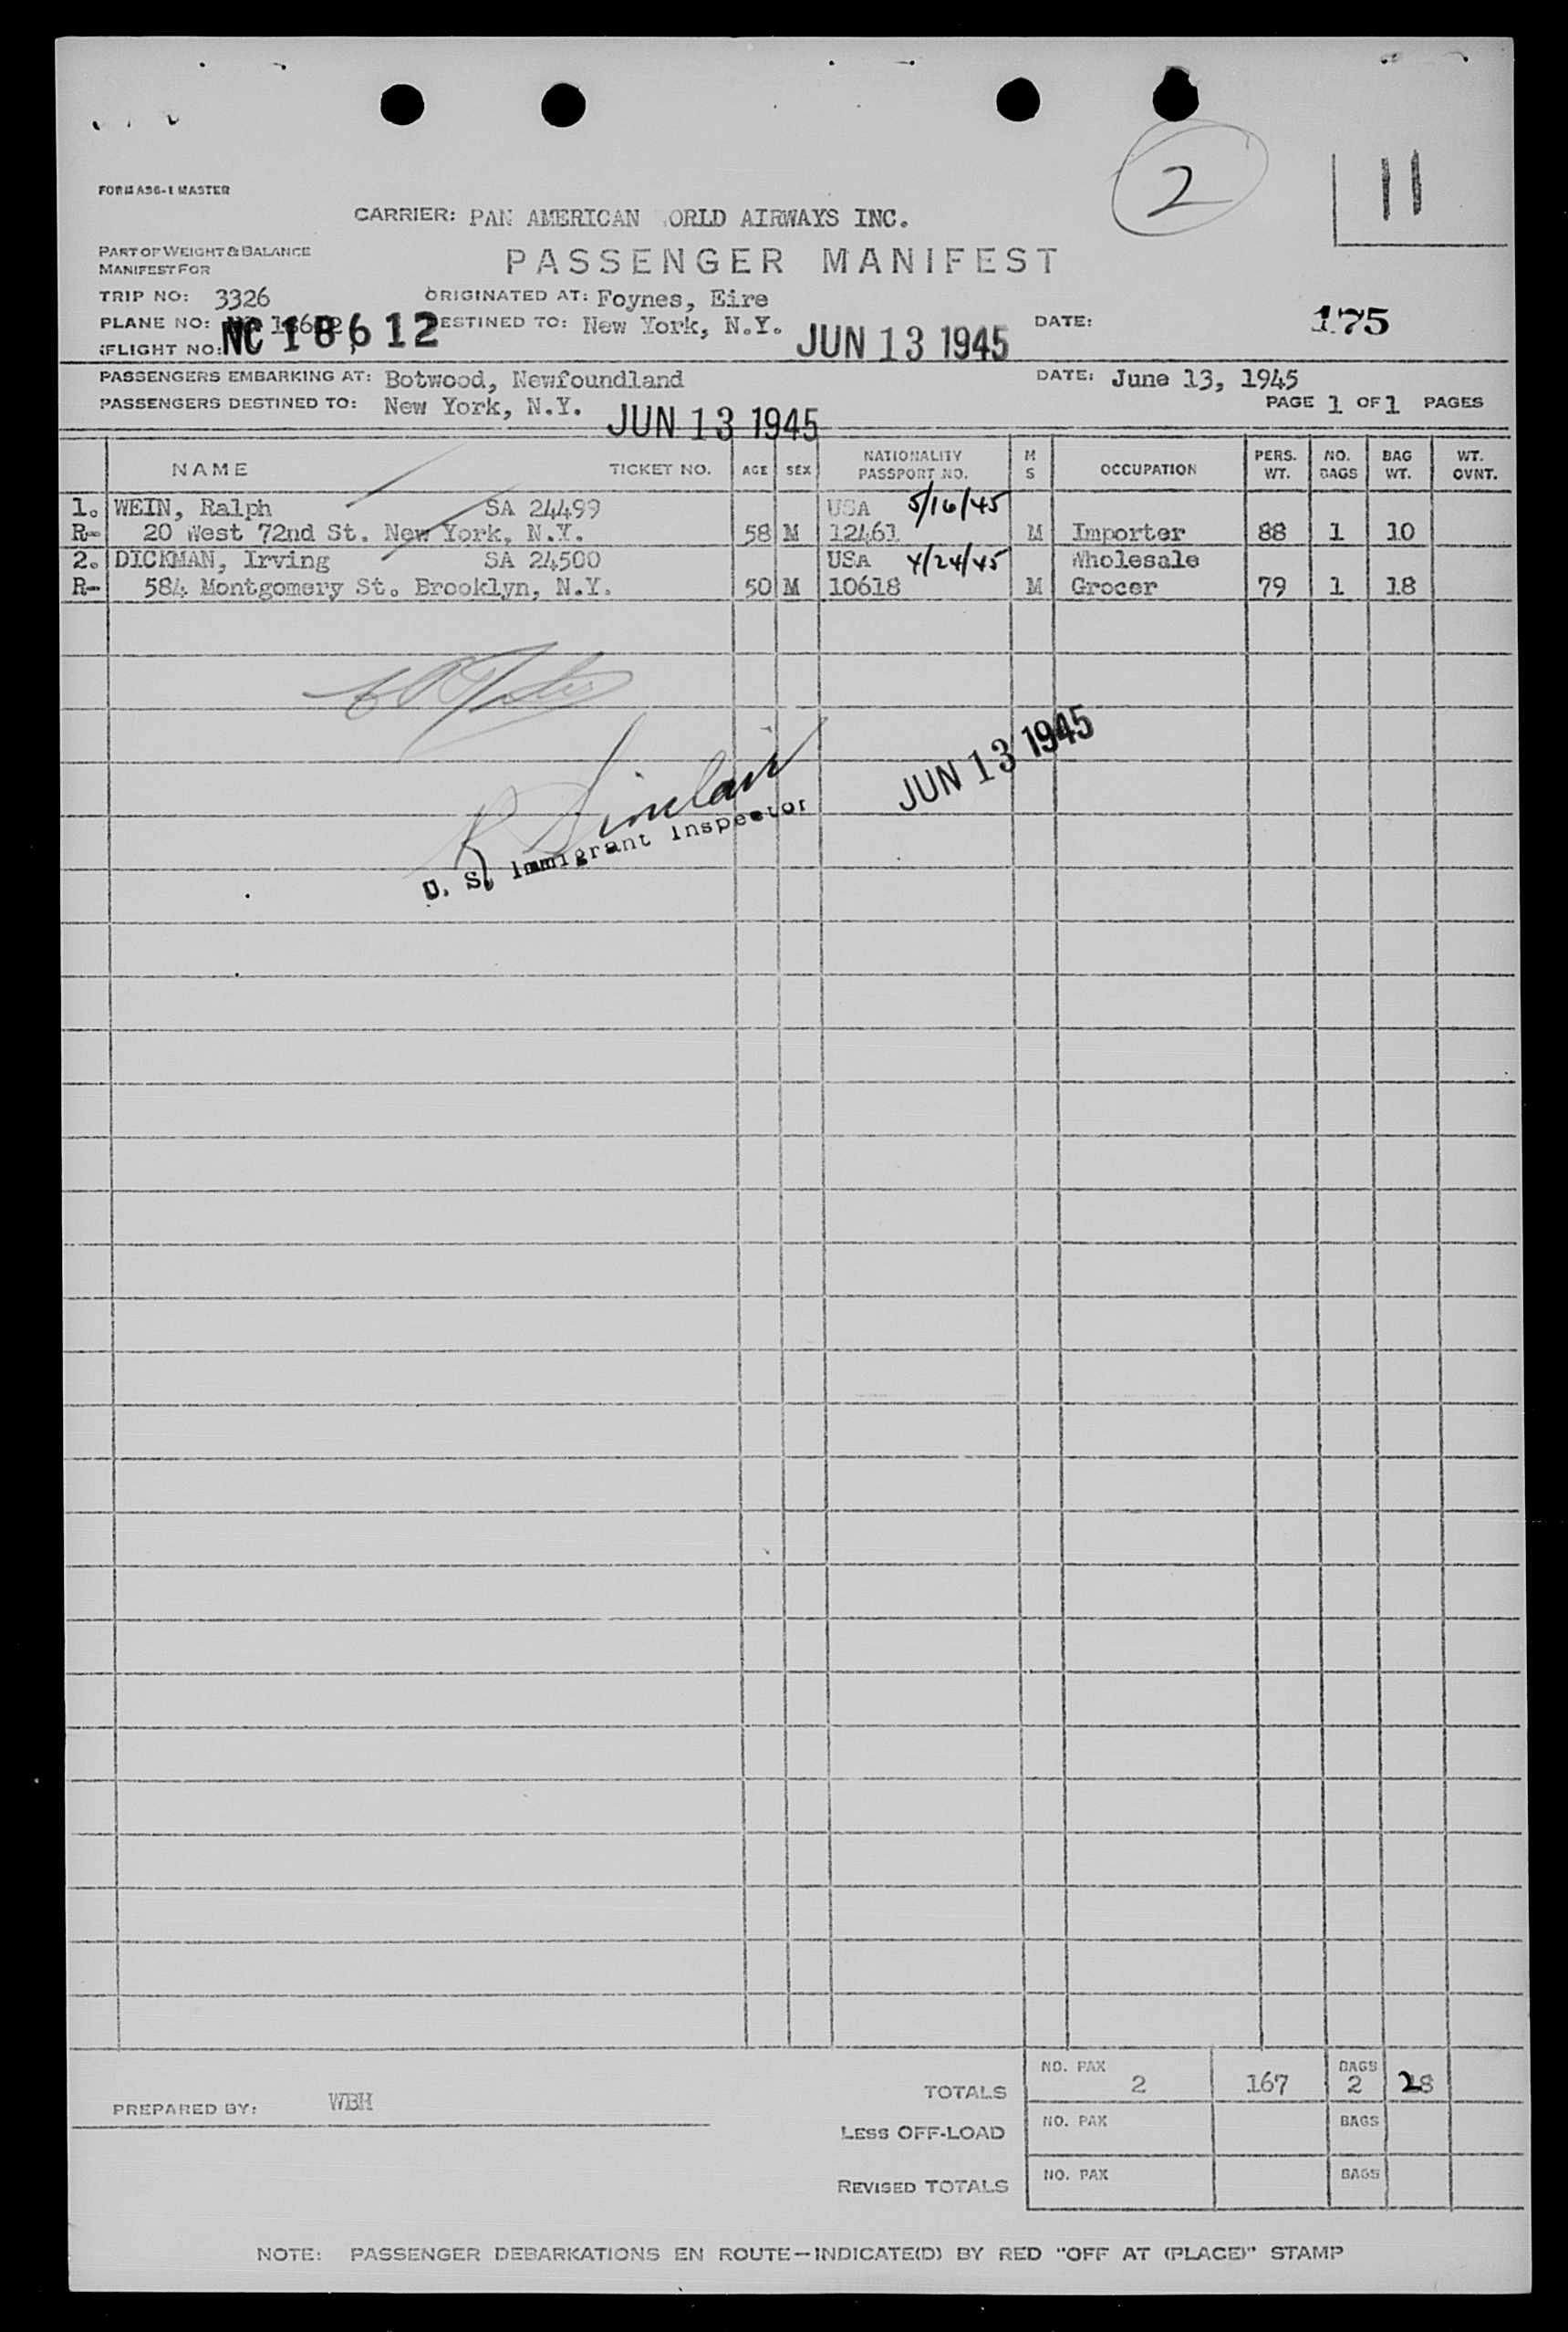 2
11
FORM A96-1 MASTER
CARRIER: PAN AMERICAN ORLD AIRWAYS INC.
PART OF WEIGHT & BALANCE
MANIFEST FOR
PASSENGER MANIFEST
TRIP NO: 3326 ORIGINATED AT: Foynes, Eire
PLANE NO: NC18612 DESTINED TO: New York, N.Y. JUN 13 1945 DATE: 175
FLIGHT NO:
PASSENGERS EMBARKING AT: Botwood, Newfoundland DATE: June 13, 1945
PASSENGERS DESTINED TO: New York, N.Y. JUN 13 1945 PAGE 1 OF 1 PAGES
NAME TICKET NO. AGE SEX NATIONALITY PASSPORT NO. M S OCCUPATION PERS. WT. NO. BAGS BAG WT. WT. OVNT.
1. WEIN, Ralph SA 24499 USA 5/16/45
R- 20 West 72nd St. New York, N.Y. 58 M 12461 M Importer 88 1 10
2. DICKMAN, Irving SA 24500 USA 4/24/45 Wholesale
R- 584 Montgomery St. Brooklyn, N.Y. 50 M 10618 M Grocer 79 1 18
JUN 13 1945
R Sinclair
U. S. Immigrant Inspector
PREPARED BY: WBH
TOTALS NO. PAX 2 167 BAGS 2 28
LESS OFF-LOAD NO. PAX BAGS
REVISED TOTALS NO. PAX BAGS
NOTE: PASSENGER DEBARKATIONS EN ROUTE—INDICATE(D) BY RED "OFF AT (PLACE)" STAMP